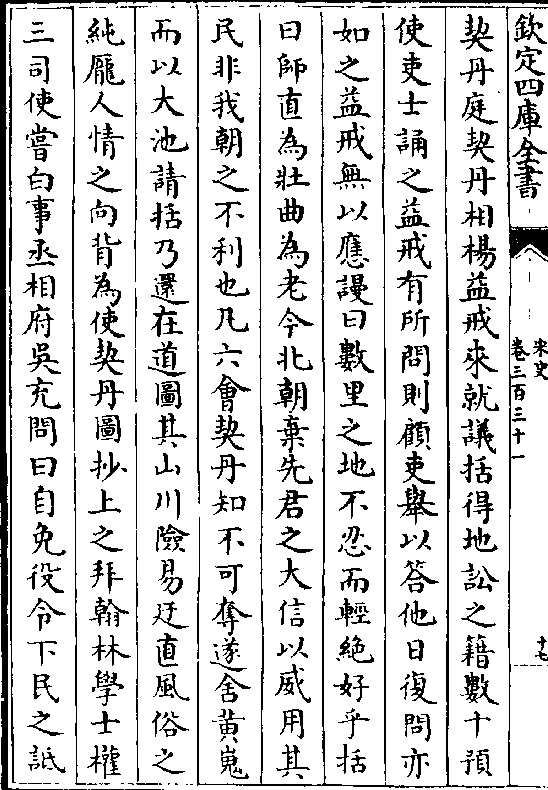 欽定四庫全書
宋史
卷三百三十一
十七
契丹庭契丹相楊益戒來就議括得地訟之籍數十預
使吏士誦之益戒有所問則顧吏舉以答他日復問亦
如之益戒無以應謾曰數里之地不忍而輕絶好乎括
曰師直為壯曲為老今北朝棄先君之大信以威用其
民非我朝之不利也凡六會契丹知不可奪遂舍黄嵬
而以大池請括乃還在道圖其山川險易迂直風俗之
純龎人情之向背為使契丹圖抄上之拜翰林學士權
三司使嘗白事丞相府吳充問曰自免役令下民之詆